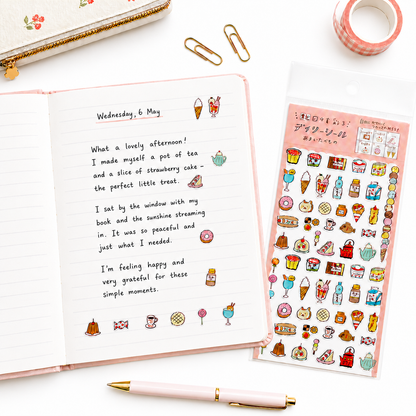 Wednesday, 6 May
What a lovely afternoon!
I made myself a pot of tea
and a slice of strawberry cake –
the perfect little treat.
I sat by the window with my
book and the sunshine streaming
in. It was so peaceful and
just what I needed.
I'm feeling happy and
very grateful for these
simple moments.
デイリーシール